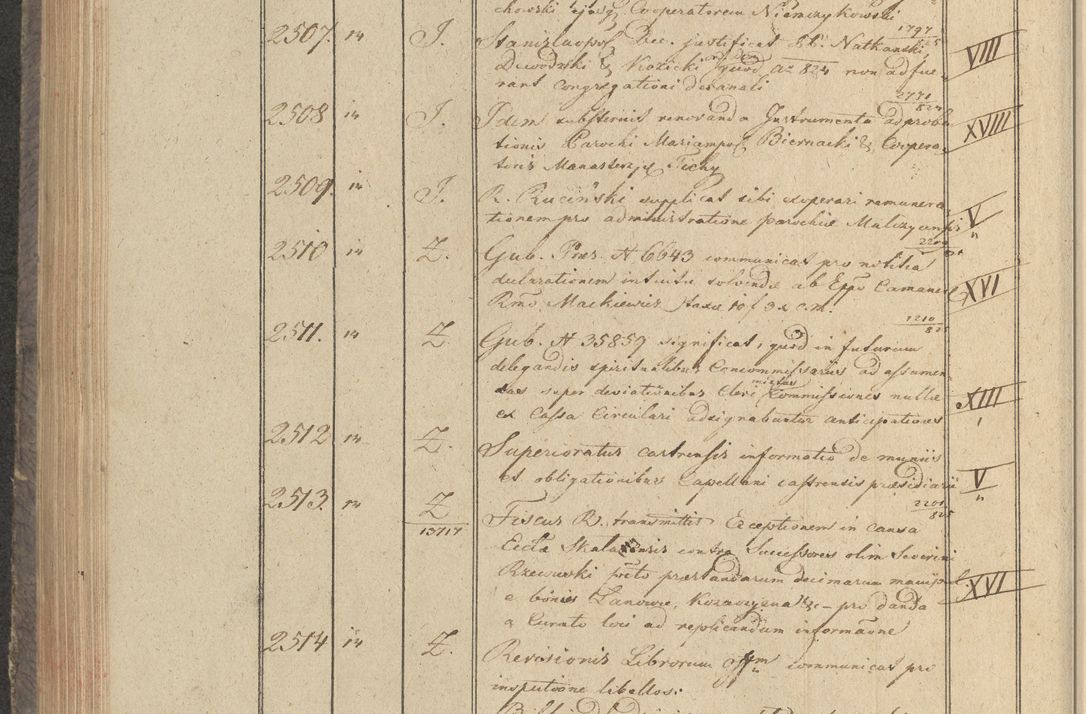 chowski ejusq Cooperatorem Niemczykowski
1797
825
2507. 14 J. Stanislaopol Dec. justificat St. Natkanski, VIII
Dwodzki & Kozicki quod a = 824 non adfue
rant congregationi decanali
2771
824
2508 14 J. Idem substernit renovanda Instrumenta adproba XVIII
tionis Parochi Mariampol Biernacki & Coopera
toris Manasterzys Tichy
2509. 14 J. R. Ruciński supplicat sibi exoperari remunera
tionem pro administratione parochiæ Malczycensis V
2510 14 Z. Gub. Præs. N 6643 communicat pro notitia
declarationem intuitu solvendæ ab Eppo Camenec XVI
Rmo. Mackiewicz taxæ 10 f 32 c.m.
1210
825
2511. 14 Z Gub. N 35859 significat, quod in futurum
delegandis spiritualibus Concommissariis ad assumen
das super deviationibus Cleri mixtas Commissiones nullæ XIII
ex Cassa Circulari adsignabuntur anticipationes
2512 14 Z. Superioratus castrensis informatio de muniis
et obligationibus Capellani castrensis præsidiarii V
2201
825
2513. 14 Z Fiscus R. transmittit Exceptionem in causa
13717
Eccłæ contra Successores olim Severini
Rzewuski pcto præstandarum decimarum manipul. XVI
e bonis Łanowce, &c – pro danda
a Curato loci ad replicandum informaone
2514 14 Z. Revisionis Librorum offm communicat pro
inspectione libellos: